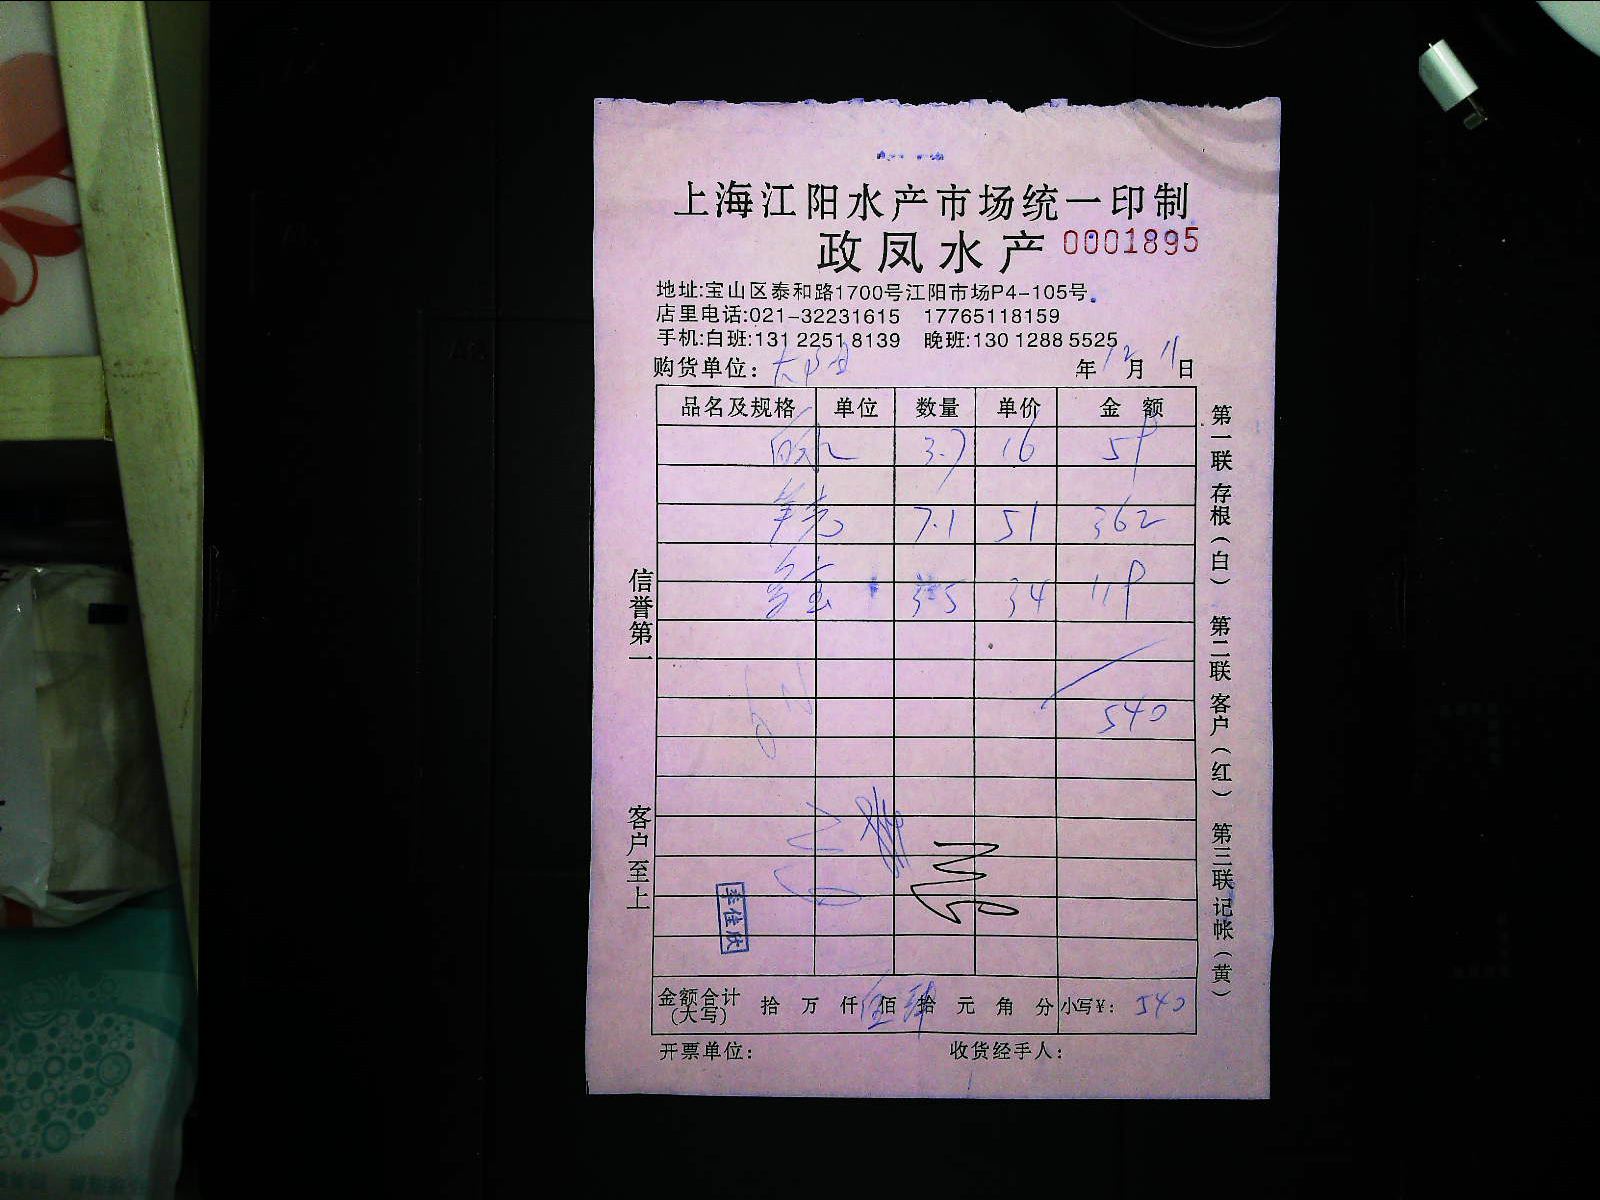 上海江阳水产市场统一印制
政凤水产 0001895
地址:宝山区泰和路1700号江阳市场P4-105号
店里电话:021-32231615 17765118159
手机:白班:131 2251 8139 晚班:130 1288 5525
购货单位: 年12月11日
品名及规格 单位 数量 单价 金额
3.7 16 59
7.1 51 362
3.5 34 119
540
信誉第一
客户至上
李佳欣
第一联 存根(白) 第二联 客户(红) 第三联 记帐(黄)
金额合计(大写) 拾 万 仟 伍 佰 肆 拾 元 角 分 小写¥: 540
开票单位: 收货经手人: